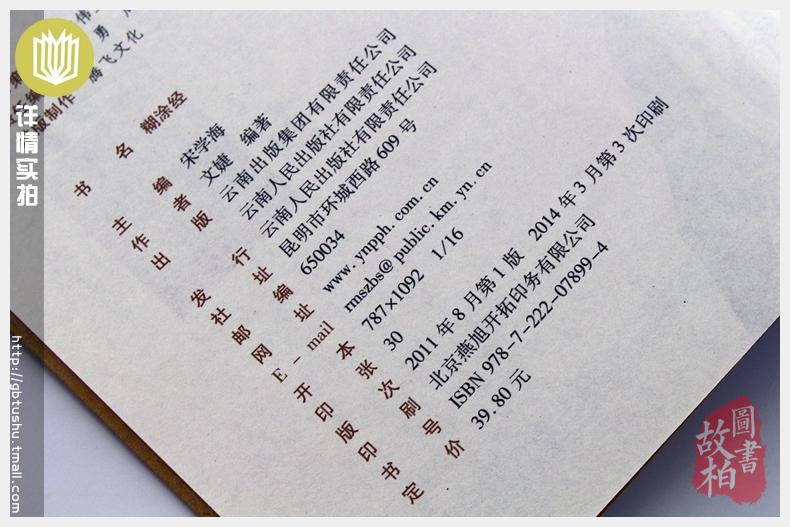 版制作 腾飞文化
书 名 糊涂经
主 编 宋学海
作 者 文婕 编著
出 版 云南出版集团有限责任公司
云南人民出版社有限责任公司
发 行 云南人民出版社有限责任公司
社 址 昆明市环城西路609号
邮 编 650034
网 址 www.ynpph.com.cn
E - mail rmszbs@public.km.yn.cn
开 本 787×1092 1/16
印 张 30
版 次 2011年8月第1版 2014年3月第3次印刷
印 刷 北京燕旭开拓印务有限公司
书 号 ISBN 978-7-222-07899-4
定 价 39.80元
详情实拍
http://gbtushu.tmall.com
故柏
圖書